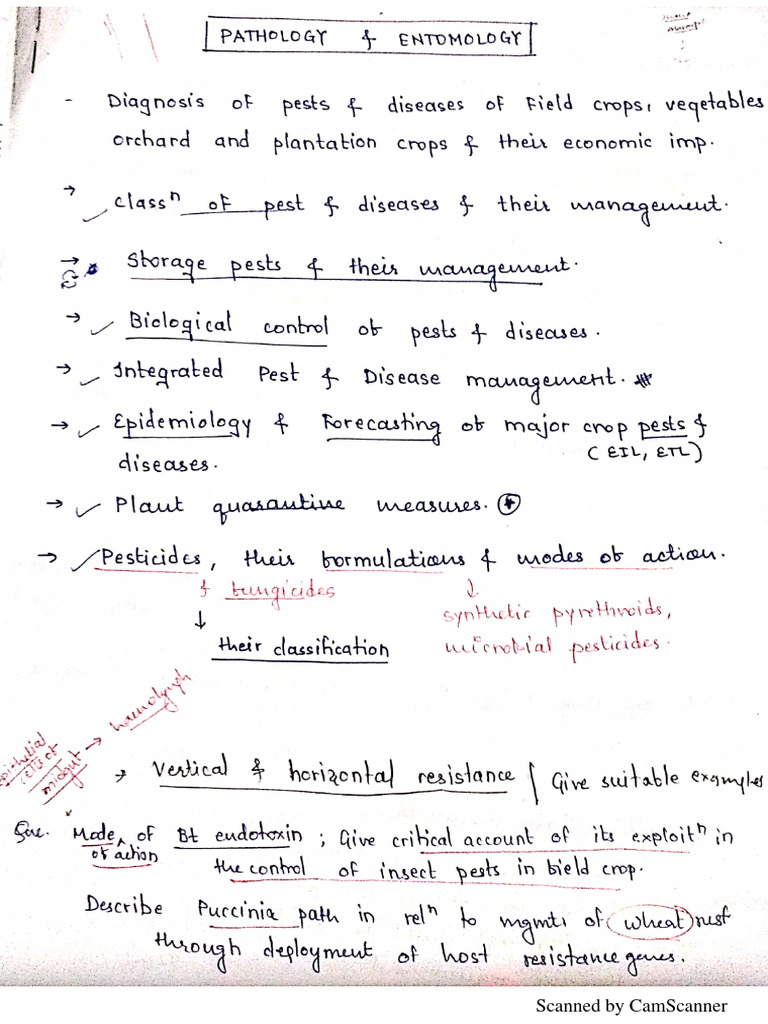 PATHOLOGY & ENTOMOLOGY
- Diagnosis of pests & diseases of Field crops, vegetables
orchard and plantation crops & their economic imp.
→ classⁿ of pest & diseases & their management.
→ Storage pests & their management.
→ Biological control of pests & diseases.
→ Integrated Pest & Disease management.
→ Epidemiology & Forecasting of major crop pests &
(EIL, ETL)
diseases.
→ Plant quarantine measures.
→ Pesticides, their formulations & modes of action.
& fungicides ↓
↓ synthetic pyrethroids,
their classification microbial pesticides.
epithelial cells of midgut → haemolymph
→ Vertical & horizontal resistance / Give suitable examples
Que. Mode of action of Bt endotoxin ; Give critical account of its exploitⁿ in
the control of insect pests in field crop.
Describe Puccinia path in relⁿ to mgmt. of wheat rust
through deployment of host resistance genes.
Scanned by CamScanner